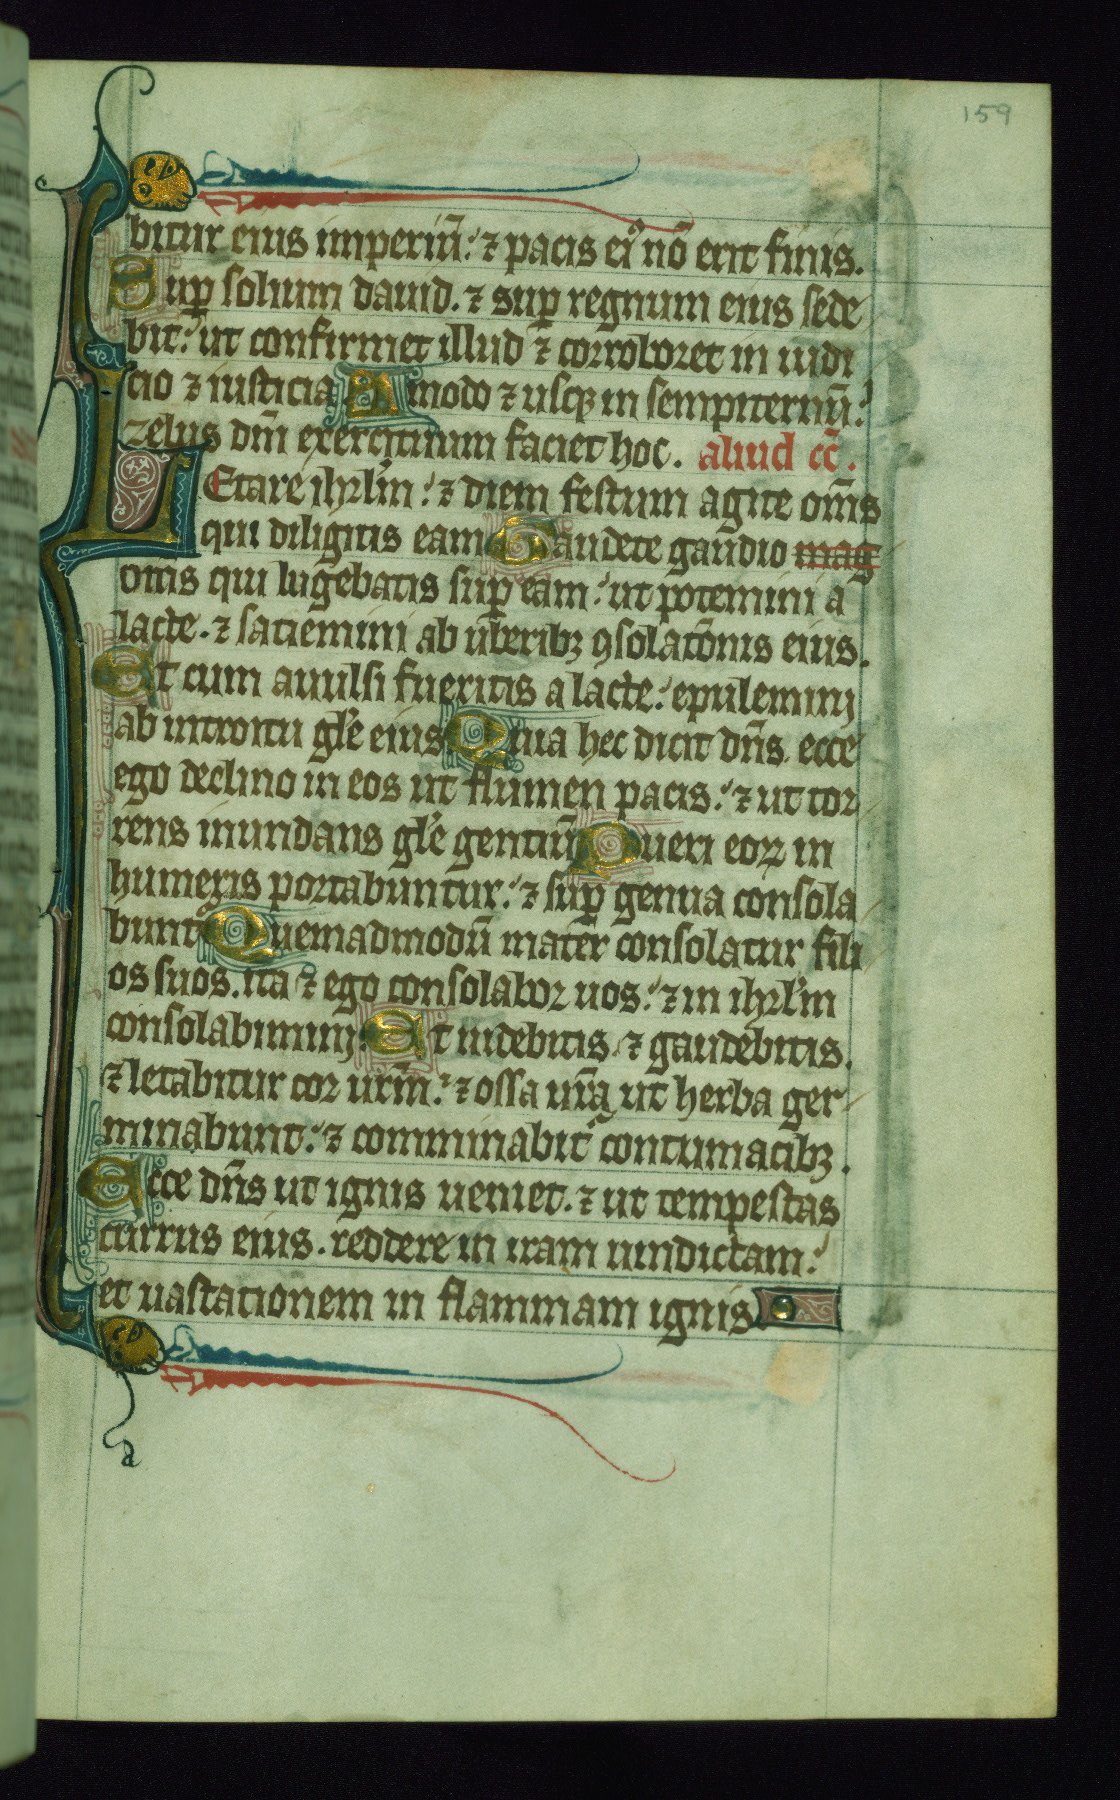 159
bitur eius imperiū. ⁊ pacis ei᷒ nō erit finis.
Sup̱ solium dauid. ⁊ sup̱ regnum eius sede
bit. ut confirmet illud ⁊ corroboret in iudi
cio ⁊ iusticia Amodo ⁊ usqꝫ in sempiternū.
zelus dn̄i exercituum faciet hoc. aliud cc̄.
LEtare ihrl̄m. ⁊ diem festum agite om̄s
qui diligitis eam Gaudete gaudio mag
om̄s qui lugebatis sup̱ eam. ut potemini a
lacte. ⁊ satiemini ab uberibꝫ ꝯsolatōnis eius.
Et cum auulsi fueritis a lacte. epulemini
ab introitu gl̄e eius Quia hec dicit dn̄s. ecce
ego declino in eos ut flumen pacis. ⁊ ut tor
rens inundans gl̄e gentiū Pueri eoꝝ in
humeris portabuntur. ⁊ sup̱ genua consola
bunt᷒ Quemadmodū mater consolatur fili
os suos. ita ⁊ ego consolabor uos. ⁊ in ihrl̄m
consolabimini. Et uidebitis. ⁊ gaudebitis.
⁊ letabitur cor urm̄. ⁊ ossa ur̄a ut herba ger
minabunt. ⁊ comminabit᷒ contumacibꝫ.
Ecce dn̄s ut ignis ueniet. ⁊ ut tempestas
currus eius. reddere in iram uindictam.
et uastationem in flammam ignis